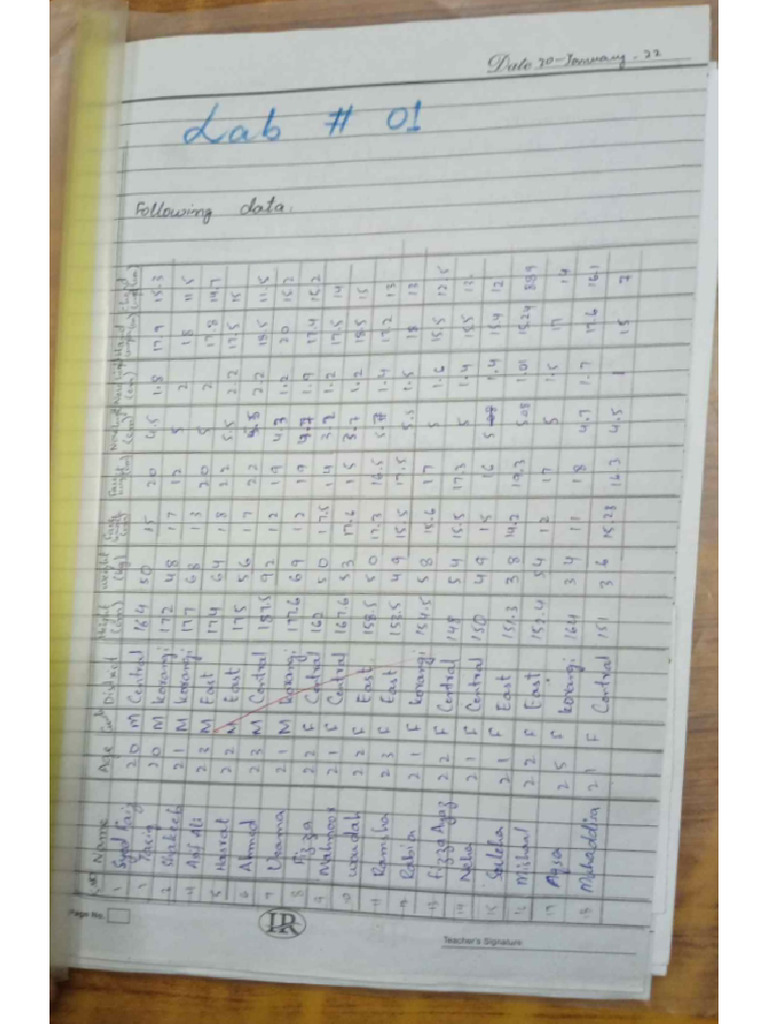 Date 20-January-22
Lab # 01
Following data.
Name Age District Height (cm) Weight (kg)
1 Syed Faiz 20 M Central 164 50 15 20 4.5 1.8 17.7 15.3
Tasin 20 M Korangi 172 48 17 5 2 18 11.5
Shakeel 21 M Korangi 177 68 13 20 5 2 17.8 14.7
4 Asif Ali 23 M East 174 64 18 22 5.5 2.2 17.5 15
5 Hasrat 22 M East 175 56 17 22 2.2 18.5 11.5
6 Ahmed 23 M Central 187.5 92 12 19 4.3 1.2 20 15.2
7 Usama 21 M Korangi 177.6 69 12 17 1.9 17.4 15.2
8 Fizza 22 F Central 162 50 17.5 14 3.2 1.2 17.5 14
9 Mahnoor 21 F Central 167.6 53 17.6 15 3.7 1.2 18.5 15
10 Wardah 22 F East 158.5 50 17.3 16.5 1.4 17.2 13
11 Ramsha 23 F East 152.5 49 15.5 17.5 5.5 1.5 18 13
12 Rabia 21 F Korangi 154.5 58 15.6 17 5 1.6 15.5 12.5
13 Fizza Ayaz 22 F Central 148 54 15.5 17.3 5 1.4 15.5 13
14 Neha 21 F Central 150 49 15 16 5.08 1.4 15.4 12
15 Saleha 21 F East 151.3 38 14.2 19.3 5.08 1.01 15.24 8.89
16 Mishal 22 F East 152.4 54 12 17 5 1.5 17 14
17 Aqsa 25 F Korangi 164 34 11 18 4.7 1.7 17.6 16.1
18 Muhaddisa 21 F Central 151 36 15.23 16.3 4.5 1 15 7
Page No.
Teacher's Signature